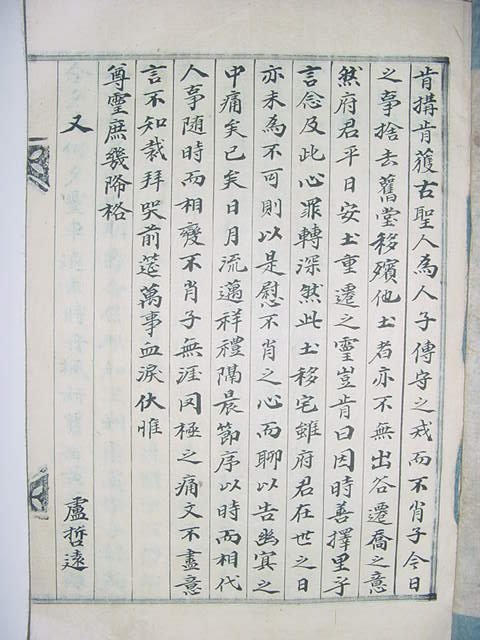 肯搆肯穫古聖人為人子傳守之戒而不肖子今日
之事捨去舊堂移殯他土者亦不無出谷遷喬之意
然府君平日安土重遷之靈豈肯曰因時善擇里乎
言念及此心罪轉深然此土移宅雖府君在世之日
亦未為不可則以是慰不肖之心而聊以告幽冥之
中痛矣已矣日月流邁祥禮隔晨節序以時而相代
人事隨時而相變不肖子無涯罔極之痛文不盡意
言不知裁拜哭前筵萬事血淚伏惟
尊靈庶幾降格
又 盧哲遠